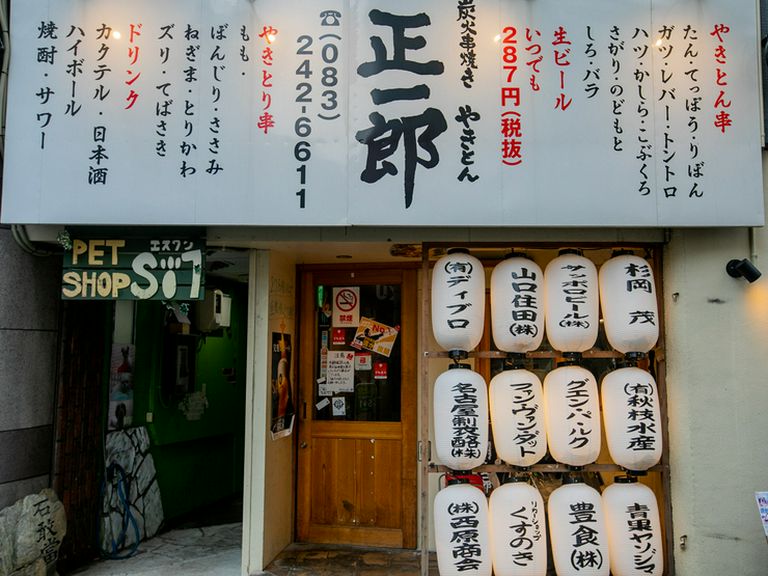 やきとん串
たん・てっぽう・りぼん
ガツ・レバー・トントロ
ハツ・かしら・こぶくろ
さがり・のどもと
しろ・バラ
生ビール
いつでも
287円(税抜)
炭火串焼き やきとん
正一郎
☎(083)
242-6611
やきとり串
もも・
ぼんじり・ささみ
ねぎま・とりかわ
ズリ・てばさき
ドリンク
カクテル・日本酒
ハイボール
焼酎・サワー
PET
SHOP
エスフン
禁煙
杉岡 茂
サッポロビール(株)
山口住田(株)
(有)ディブロ
(有)秋枝水産
グエン・バ・ルク
ファンヴァンダット
名古屋製酪(株)
青果ヤソジマ
豊食(株)
リカーショップ
くすのき
(株)西原商会
石敢當